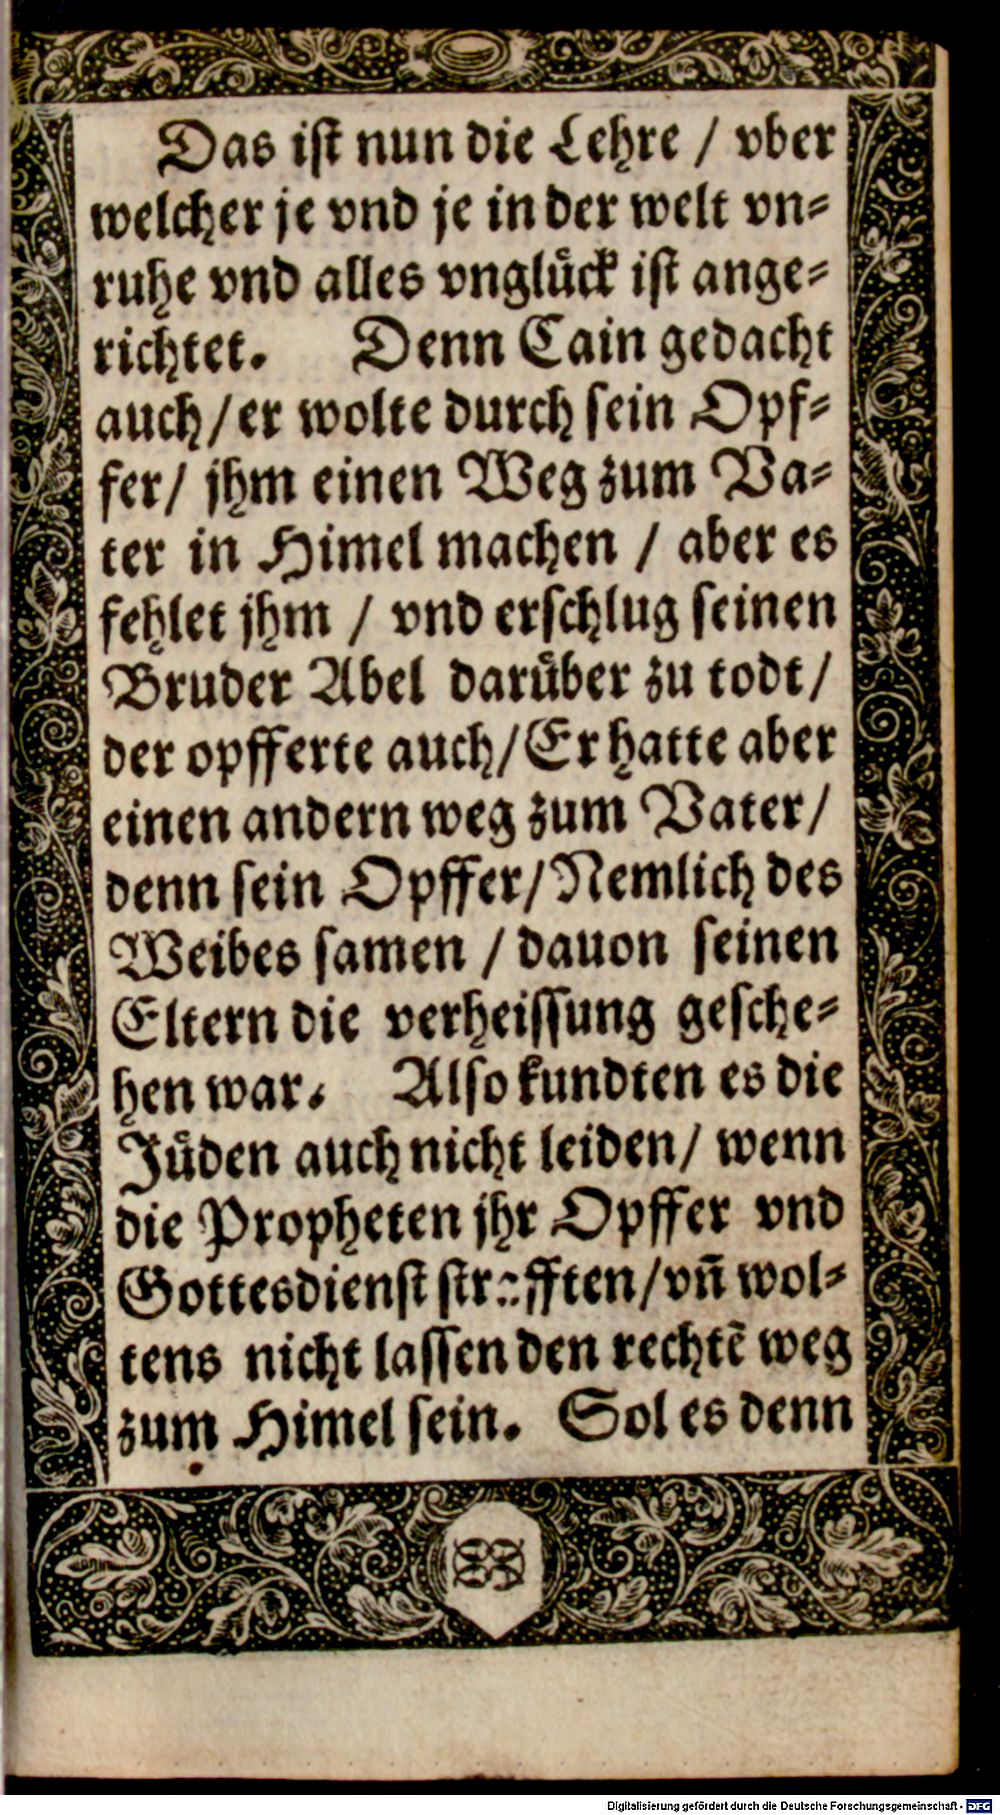 Das ist nun die Lehre / vber
welcher je vnd je in der welt vn⸗
ruhe vnd alles vngluͤck ist ange⸗
richtet. Denn Cain gedacht
auch / er wolte durch sein Opf⸗
fer / jhm einen Weg zum Va⸗
ter in Himel machen / aber es
fehlet jhm / vnd erschlug seinen
Bruder Abel daruͤber zu todt /
der opfferte auch / Er hatte aber
einen andern weg zum Vater /
denn sein Opffer / Nemlich des
Weibes samen / dauon seinen
Eltern die verheissung gesche⸗
hen war. Also kundten es die
Juͤden auch nicht leiden / wenn
die Propheten jhr Opffer vnd
Gottesdienst / vn̄ wol⸗
tens nicht lassen den rechtē weg
zum Himel sein. Sol es denn
Digitalisierung gefördert durch die Deutsche Forschungsgemeinschaft - DFG